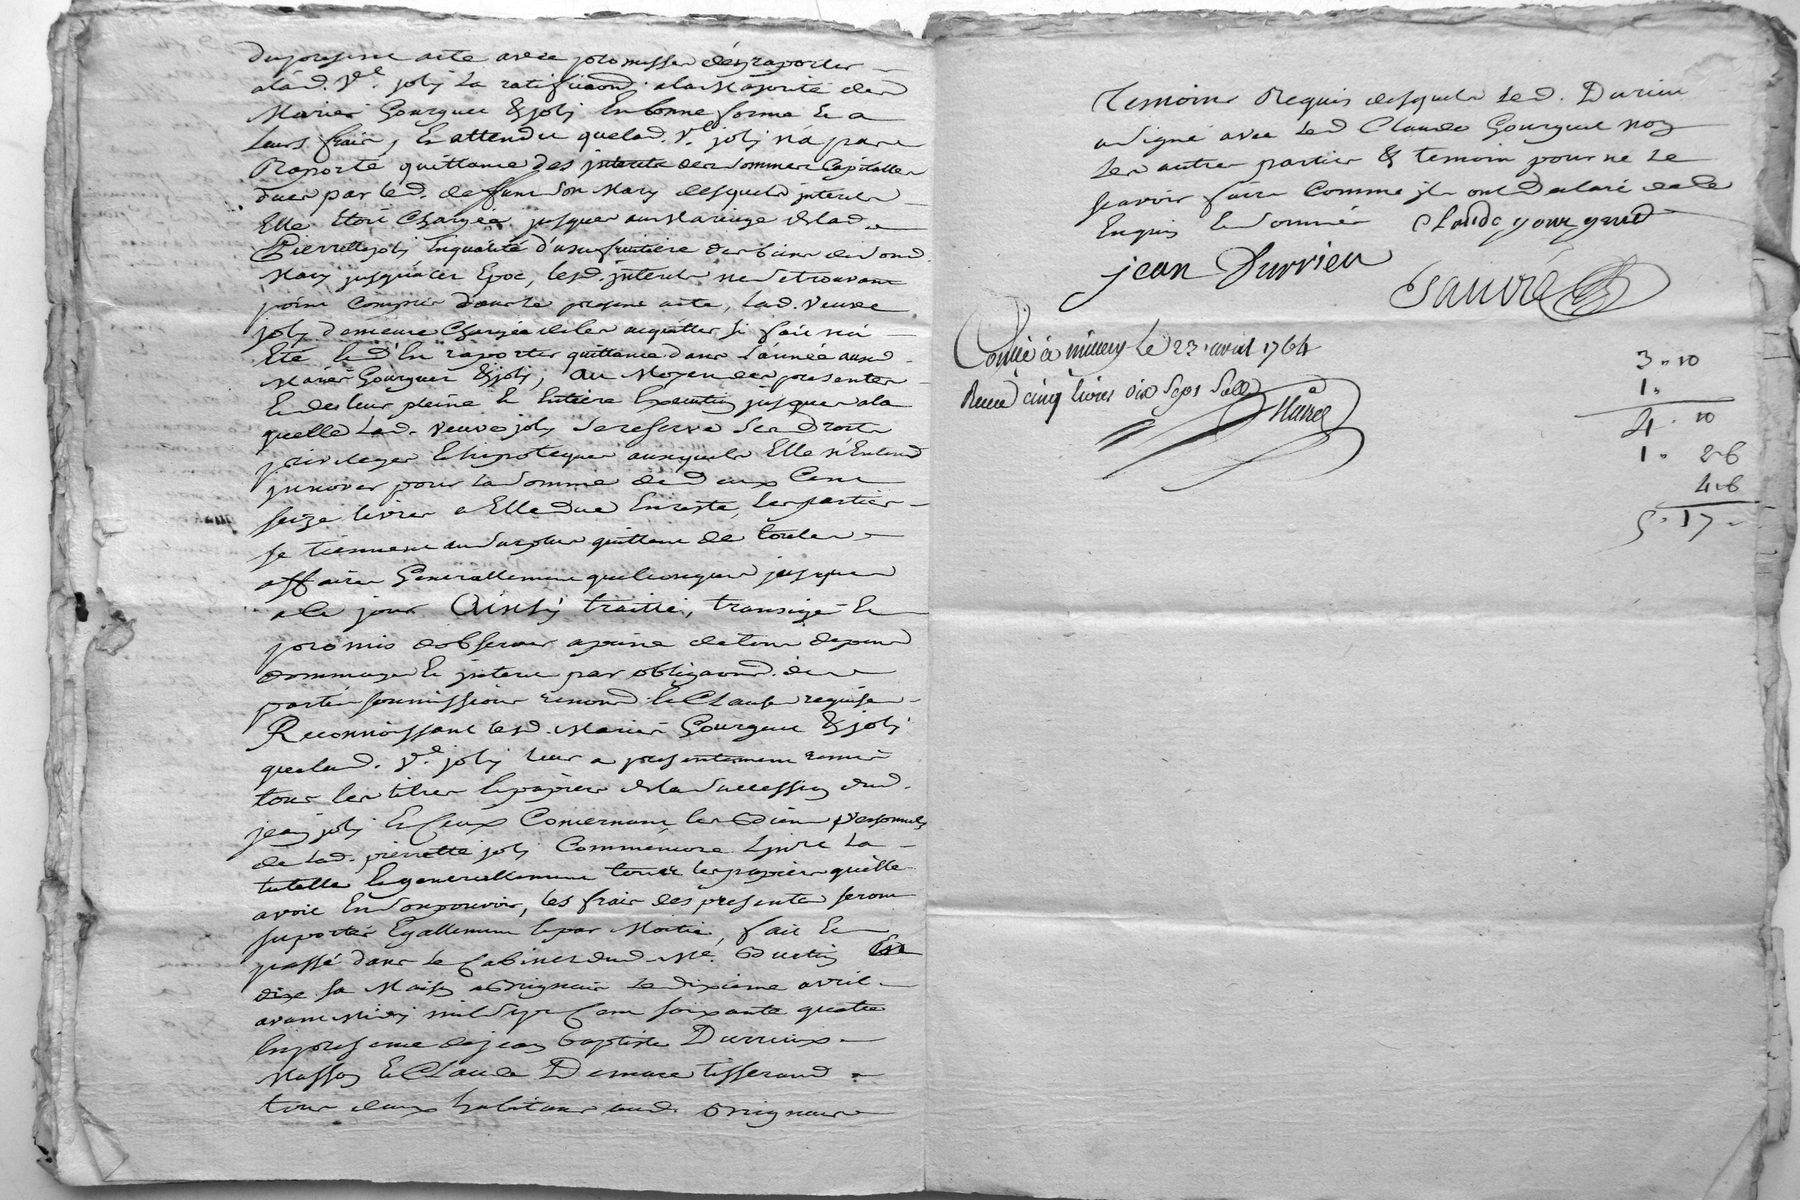 du present acte avec promesse d'en raporter
a lad. Ve. joly la ratification a la Majorité desd
Mariés Gourgue & joly En bonne forme Et a
leurs frais, Et attendu que lad. Ve joly n'a pas
Raporté quittance des interets des sommes Capitalles
dues par led. deffunt son Mary desquels interets
Elle Etoit Chargée jusques au Mariage de lad.
Pierrette joly En qualité d'usufruitiere des biens de sond.
Mary jusqu'a cet Epoc, lesd. interets ne se trouvant
point Compris dans le present acte, lad. veuve
joly demeure Chargée de les acquitter si fait n'a
Eté Et d'En raporter quittance dans l'année auxd
Mariés Gourgue & joly, au Moyen des presentes
jusques a la
quelle lad. veuve joly se reserve ses droits
privileges Et hipoteques auxquels Elle n'Entend
innover pour la somme de deux Cent
seize livres a Elle due En reste, les parties
se tiennent au surplus quittent de toutes
affaires Generallement quelconques jusques
a ce jour Ainsy traitté, transigé Et
promis d'observer a peine de tous depens
dommages Et interets par obligaond. de
soumissions renond. Et Clauses requises
Reconnoissant lesd. Mariés Gourgue & joly
que lad. Ve. joly leur a presentement remis
tous les titres Et papiers de la succession dud.
jean joly Et Ceux Concernant les Biens personnels
de lad. pierrette joly Comme Encore la
tutelle Et generallement tous les papiers qu'elle
avoit En son pouvoir, les frais des presentes seront
suportés Egallement Et par Moitié, fait Et
passé dans le Cabinet dud. Me.
sa Maison a Brignais le dixieme avril
avant Midy mil sept Cent soixante quatre
En presence de jean Baptiste Durrieux
Masson Et Claude Demare tisserand
tous deux habitans aud. Brignais
temoins Requis desquels led. Durieu
a signé avec led Claude Gourgue non
les autres parties & temoin pour ne le
scavoir faire Comme ils ont Declaré de ce
Enquis Et sommés Claude gourgued
jean Durrieu
Conllé à millery le 23. avril 1764
Receu cinq livres dix Sept Solls
3 " 10
1 "
4 " 10
1 " 2-6
4-6
5 " 17 -